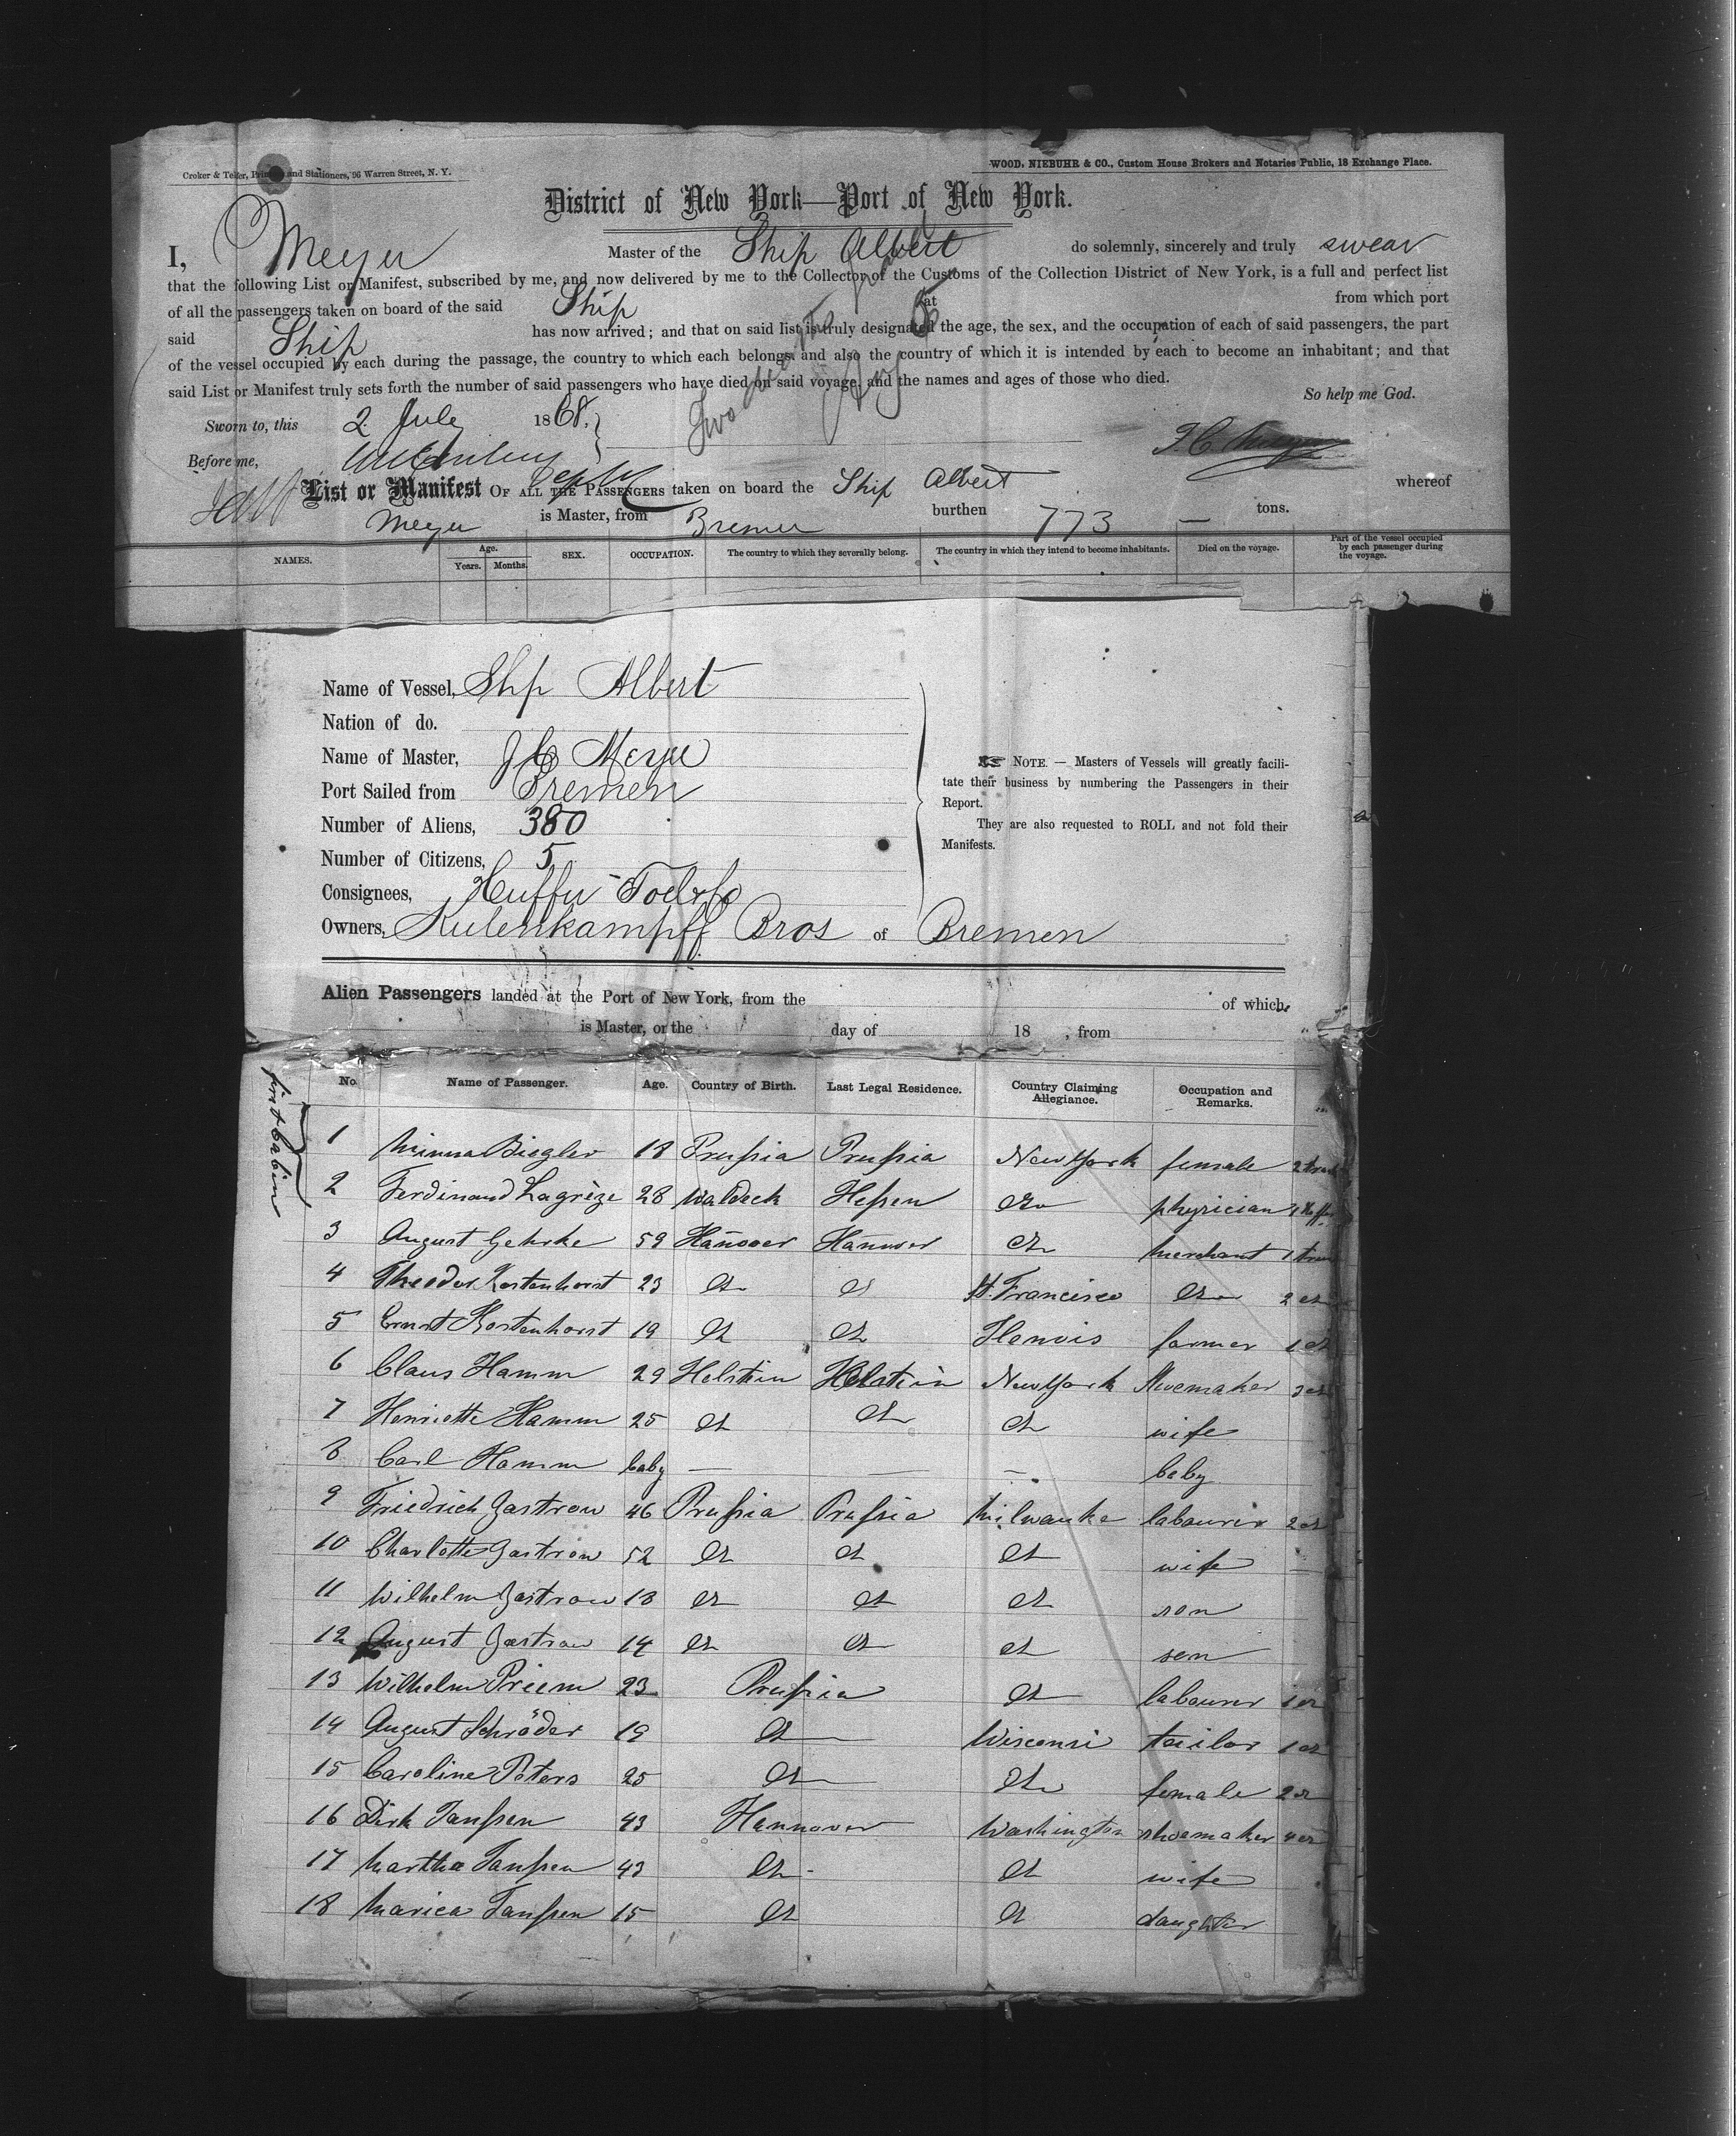 Croker & Telfer, Printers and Stationers, 96 Warren Street, N. Y.
WOOD, NIEBUHR & CO., Custom House Brokers and Notaries Public, 18 Exchange Place.
District of New York—Port of New York.
I, Meyer Master of the Ship Albert do solemnly, sincerely and truly swear
that the following List or Manifest, subscribed by me, and now delivered by me to the Collector of the Customs of the Collection District of New York, is a full and perfect list
of all the passengers taken on board of the said Ship at from which port
said Ship has now arrived; and that on said list is truly designated the age, the sex, and the occupation of each of said passengers, the part
of the vessel occupied by each during the passage, the country to which each belongs and also the country of which it is intended by each to become an inhabitant; and that
said List or Manifest truly sets forth the number of said passengers who have died on said voyage, and the names and ages of those who died.
So help me God.
Sworn to, this 2 July 1868.
Before me,
List or Manifest OF ALL THE PASSENGERS taken on board the Ship Albert whereof
Meyer is Master, from Bremen burthen 773 tons.
NAMES. Age. Years. Months. SEX. OCCUPATION. The country to which they severally belong. The country in which they intend to become inhabitants. Died on the voyage. Part of the vessel occupied by each passenger during the voyage.
Name of Vessel, Ship Albert
Nation of do.
Name of Master, J C Meyer
Port Sailed from Bremen
Number of Aliens, 380
Number of Citizens, 5
Consignees,
Owners, Kulenkampff Bros of Bremen
NOTE. — Masters of Vessels will greatly facili-
tate their business by numbering the Passengers in their
Report.
They are also requested to ROLL and not fold their
Manifests.
Alien Passengers landed at the Port of New York, from the of which
is Master, or the day of 18 , from
No. Name of Passenger. Age. Country of Birth. Last Legal Residence. Country Claiming Allegiance. Occupation and Remarks.
first Cabin
1 Minna Biegler 18 Prussia Prussia New York female 2
2 Ferdinand Lagrèze 28 Waldeck Hessen do physician
3 August Gehrke 59 Hannover Hannover do merchant 1
4 Theodor Kostenhorst 23 do do St. Francisco do 2 do
5 Ernst Kostenhorst 19 do do Ilenois farmer 1 do
6 Claus Hamm 29 Holstein Holstein New York Shoemaker 3 do
7 Henriette Hamm 25 do do do wife
8 Carl Hamm baby — — — baby
9 Friedrich Zastrow 46 Prussia Prussia Milwauke labourer 2 do
10 Charlotte Zastrow 52 do do do wife
11 Wilhelm Zastrow 18 do do do son
12 August Zastrow 14 do do do son
13 Wilhelm Priem 23 Prussia do labourer 1 do
14 August Schröder 19 do Wisconsi tailor 1 do
15 Caroline Peters 25 do do female 2 do
16 Dirk Janssen 43 Hannover Washington shoemaker 4 do
17 Martha Janssen 43 do do wife
18 Mariea Janssen 15 do do daughter